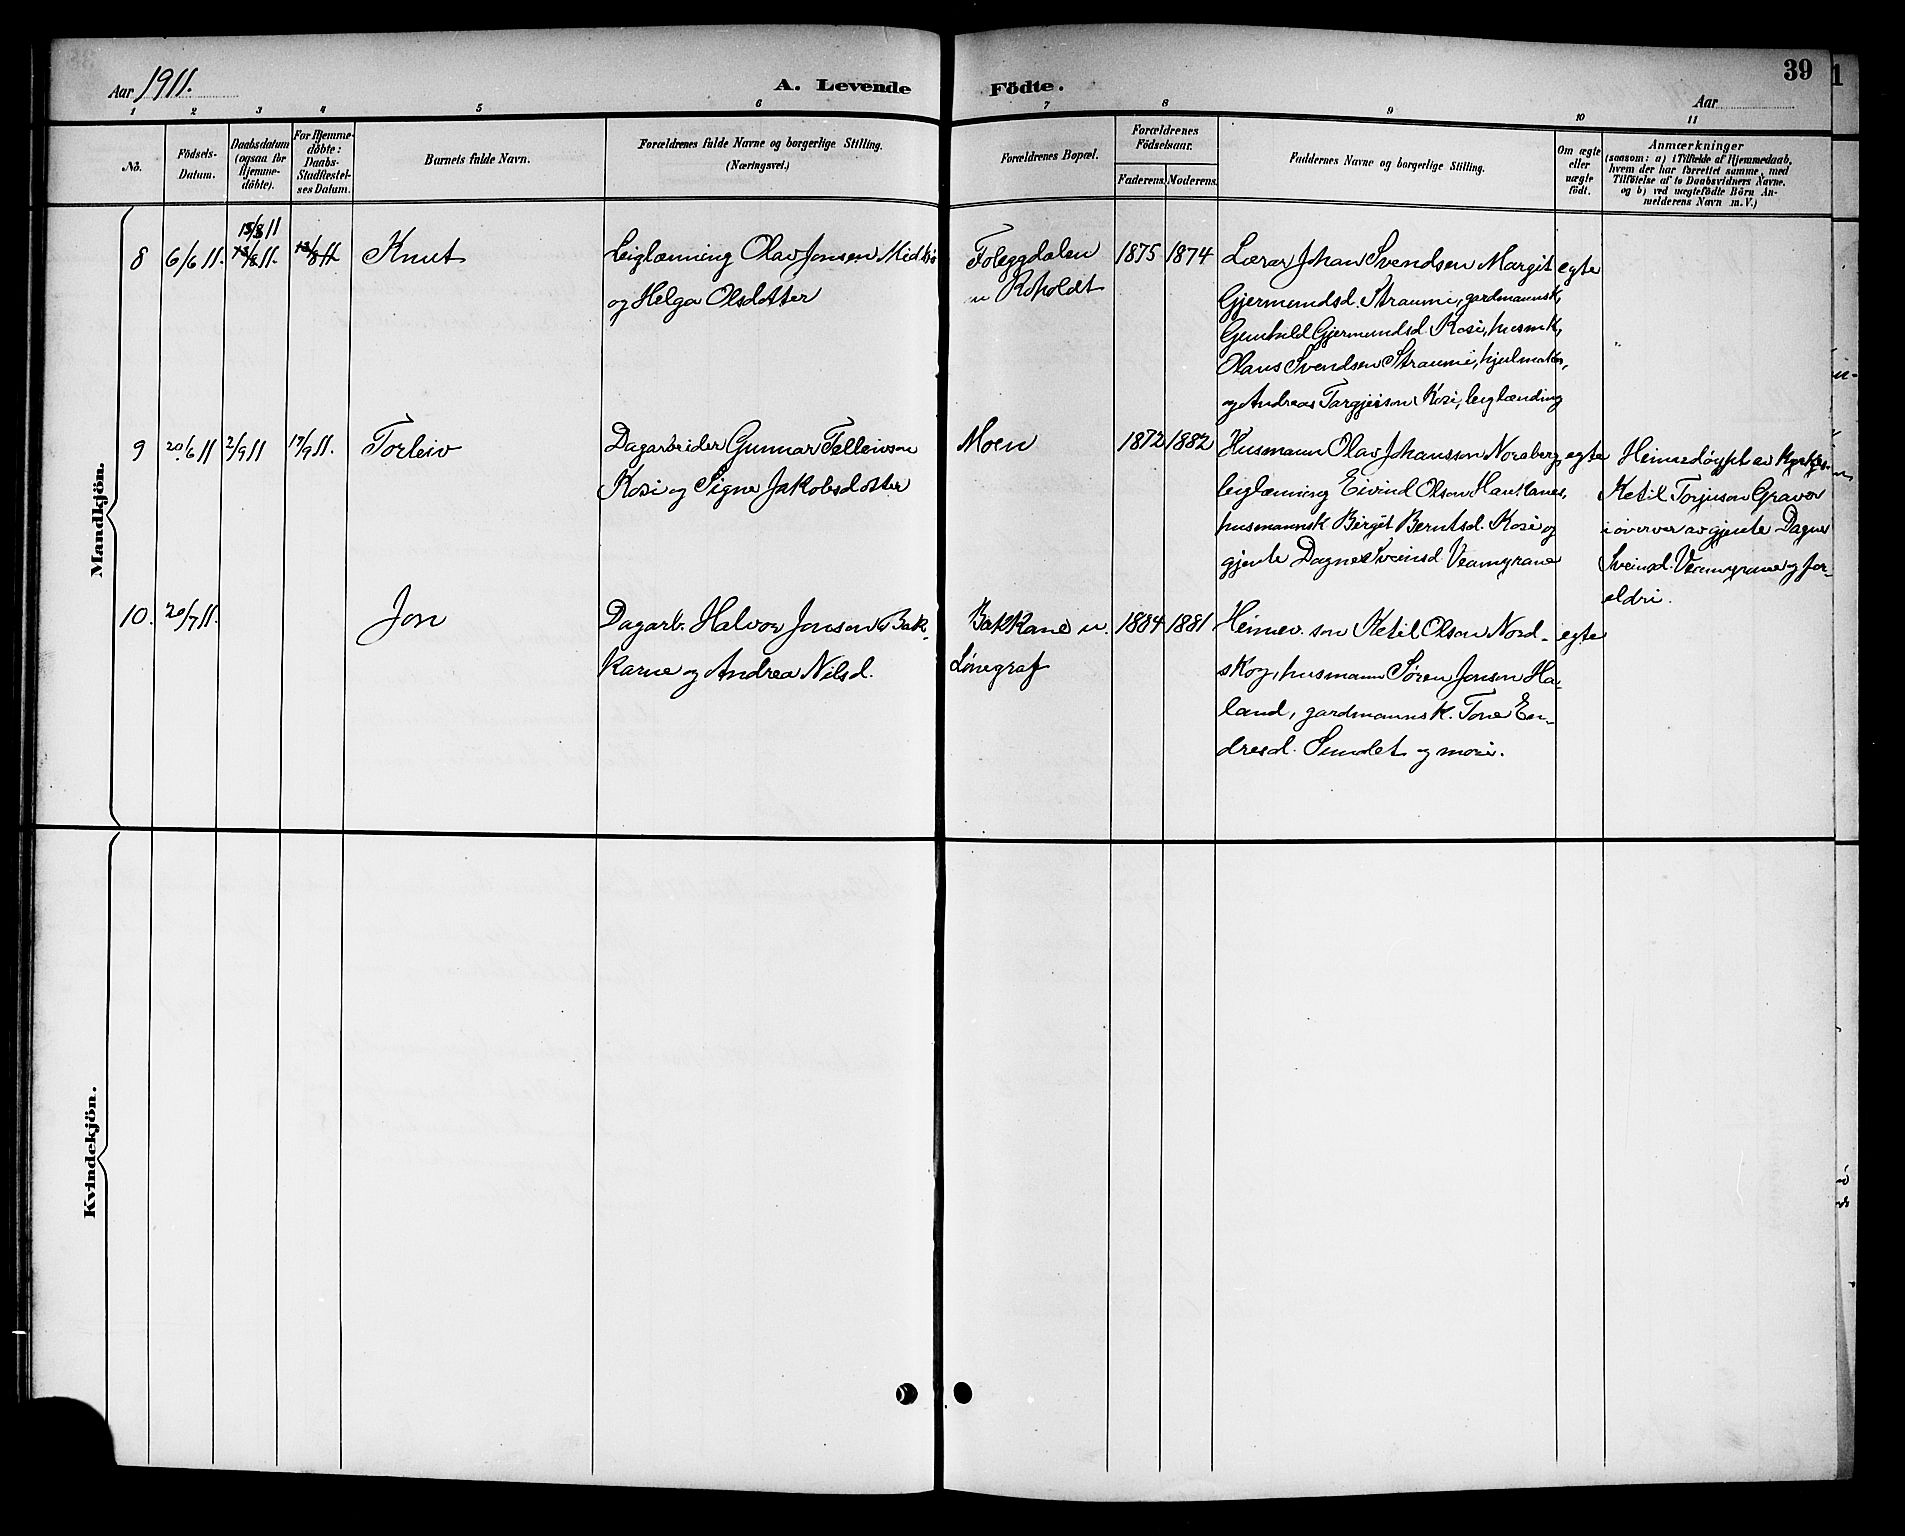 Aar 1911.
A. Levende Födte.
39
Aar
1 2 3 4 5 6 7 8 9 10 11
No.
Födsels-Datum.
Daabsdatum (ogsaa for Hjemme-döbte).
For Hjemme-döbte: Daabs-Stadfæstel-ses Datum.
Barnets fulde Navn.
Forældrenes fulde Navne og borgerlige Stilling.
(Næringsvei.)
Forældrenes Bopæl.
Forældrenes Födselsaar.
Faderens. Moderens.
Faddernes Navne og borgerlige Stilling.
Om ægte eller uægte födt.
Anmærkninger
(saasom: a) i Tilfælde af Hjemmedaab,
hvem der har forrettet samme, med
Tilföielse af to Daabsvidners Navne,
og b) ved uægtefödte Börn An-
melderens Navn m. V.)
Mandkjön.
8 6/6 11. 13/8 11 Knut
Leiglænning Olav Jonsen
og Helga Olsdotter
Foleggdalen
u Roholdt
1875 1874
Lærar Johan Svendsen Margit
Gjermundsd. Straumi, gardmannsk,
Gunhild Gjermundsd Kosi, husmk,
Olaus Svendsen Straumi,
og Andreas Targjeison Kosi, leiglænding
egte
9 20/6 11 2/9 11 17/9 11. Torleiv
Dagarbeider Gunnar Felleivson
Kosi og Signe Jakobsdotter
Moen
1872 1882
Husmann Olav Johansson Noraberg,
leiglænning Eivind Olson Hauklanes,
husmannsk Birgit Berntsd. Kosi og
gjente Dagne Sveinsd Veamyrane
egte
Heimedøypt av
Ketil Torjuson Graver
i øverver av gjente Dagne
Sveinsd. Veamyrane og for-
eldri.
10. 20/7 11. Jon
Dagarb. Halvor Jonson Bak-
kane og Andrea Nilsd.
Bakkane u.
Lønegraf
1884 1881
Heimev. son Ketil Olson Nord-
skog, husmann Søren Jonson Ha-
land, gardmannsk. Tone En-
dresd. Sundet og mori.
egte
Kvindekjön.